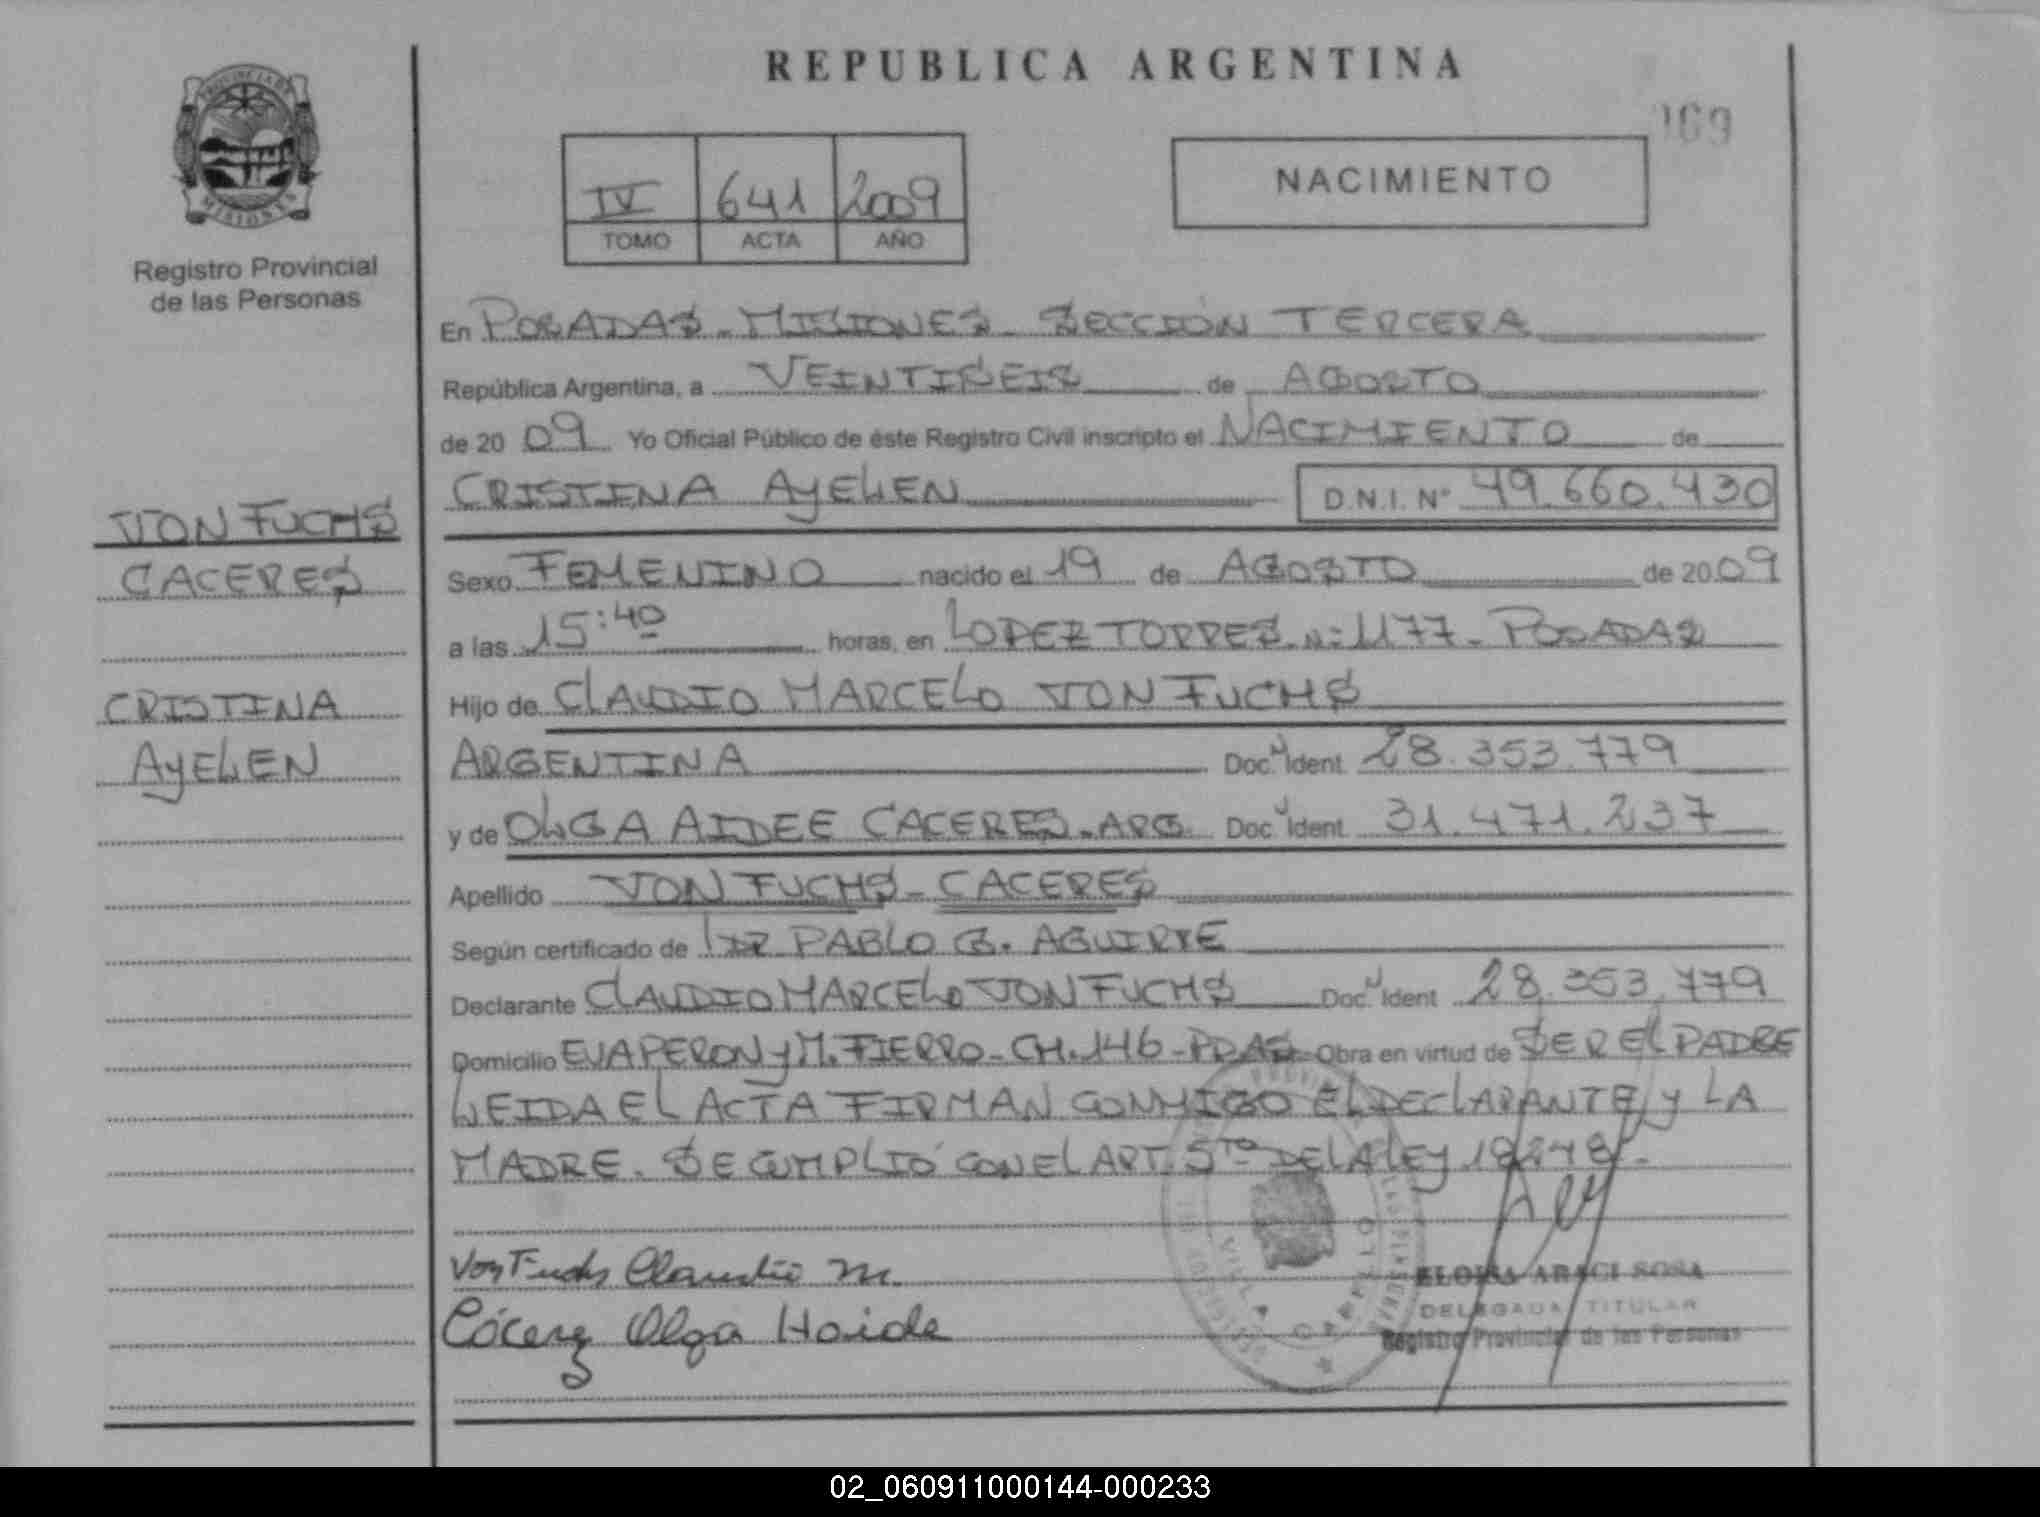 REPUBLICA ARGENTINA
169
PROVINCIA DE
MISIONES
Registro Provincial
de las Personas
IV 641 2009
TOMO ACTA AÑO
NACIMIENTO
En POSADAS - MISIONES - SECCION TERCERA
República Argentina, a VEINTISEIS de AGOSTO
de 20 09 Yo Oficial Público de éste Registro Civil inscripto el NACIMIENTO de
CRISTINA AYELEN D.N.I. N° 49.660.430
VON FUCHS
CACERES
CRISTINA
AYELEN
Sexo FEMENINO nacido el 19 de AGOSTO de 20 09
a las 15:40 horas, en LOPEZ TORRES N: 1177 - POSADAS
Hijo de CLAUDIO MARCELO VON FUCHS
ARGENTINA Doc. Ident 28.353.779
y de OLGA AIDEE CACERES - ARG. Doc. Ident 31.471.237
Apellido VON FUCHS - CACERES
Según certificado de PABLO G. AGUIRRE
Declarante CLAUDIO MARCELO VON FUCHS Doc. Ident 28.353.779
Domicilio EVA PERON y M. FIERRO - CH. 146 - PDAS Obra en virtud de SER EL PADRE
LEIDA EL ACTA FIRMAN CONMIGO EL DECLARANTE y LA
MADRE. SE CUMPLIO CON EL ART. 5to DE LA LEY 18248 -
Von Fuchs Claudio M.
Cácerez Olga Haide
ELOISA ARACI SOSA
DELEGADA TITULAR
Registro Provincial de las Personas
02_060911000144-000233